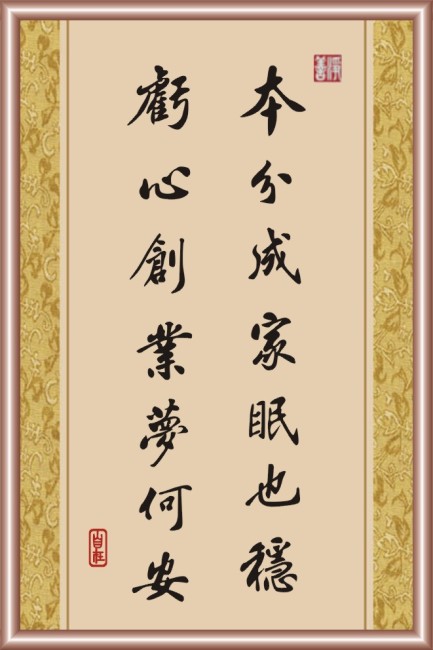 本分成家眠也穩
虧心創業夢何安